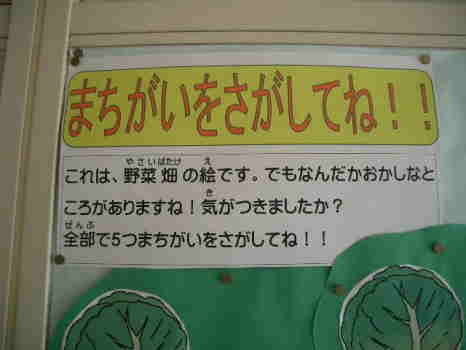 まちがいをさがしてね！！
これは、野菜畑の絵です。でもなんだかおかしなと
ころがありますね！気がつきましたか？
全部で5つまちがいをさがしてね！！